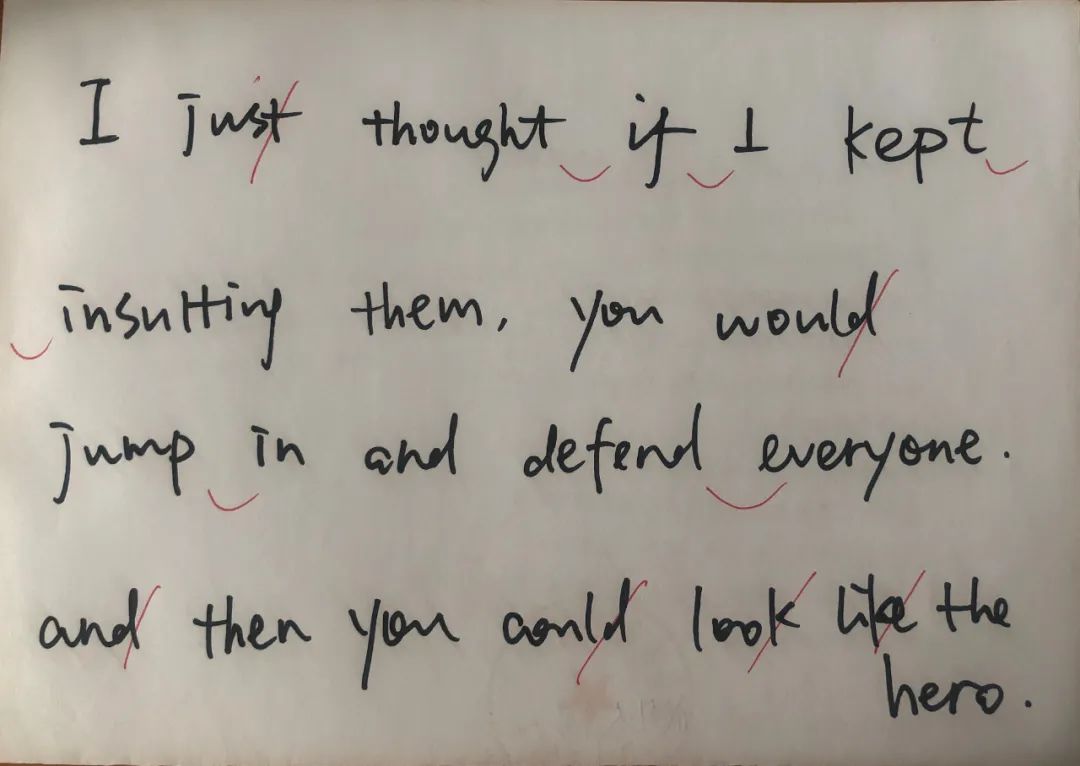 I just thought if I kept
insulting them, you would
jump in and defend everyone.
and then you could look like the
hero.